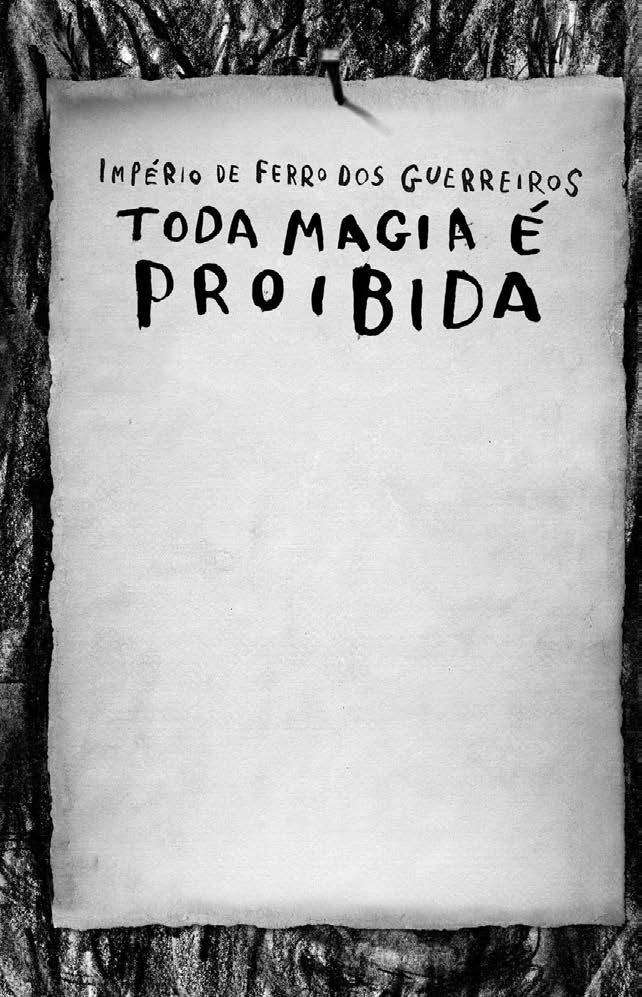 IMPÉRIO DE FERRO DOS GUERREIROS
TODA MAGIA É
PROIBIDA